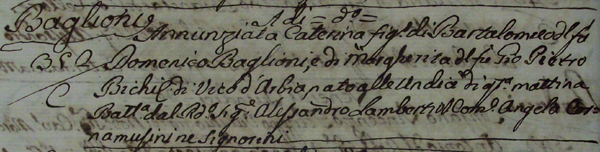 Baglioni A dì = d.º =
Annunziata Caterina fig.ª di Bartolomeo del fu
352 Domenico Baglioni, e di Margherita del fu Gio Pietro
Bichi di Vico d'Arbia, nato alle Undici di q.ta mattina
Batt.ª dal R.do Sig.r Alessandro Lamberti Com.e Angela Cor-
namusini ne Signorini